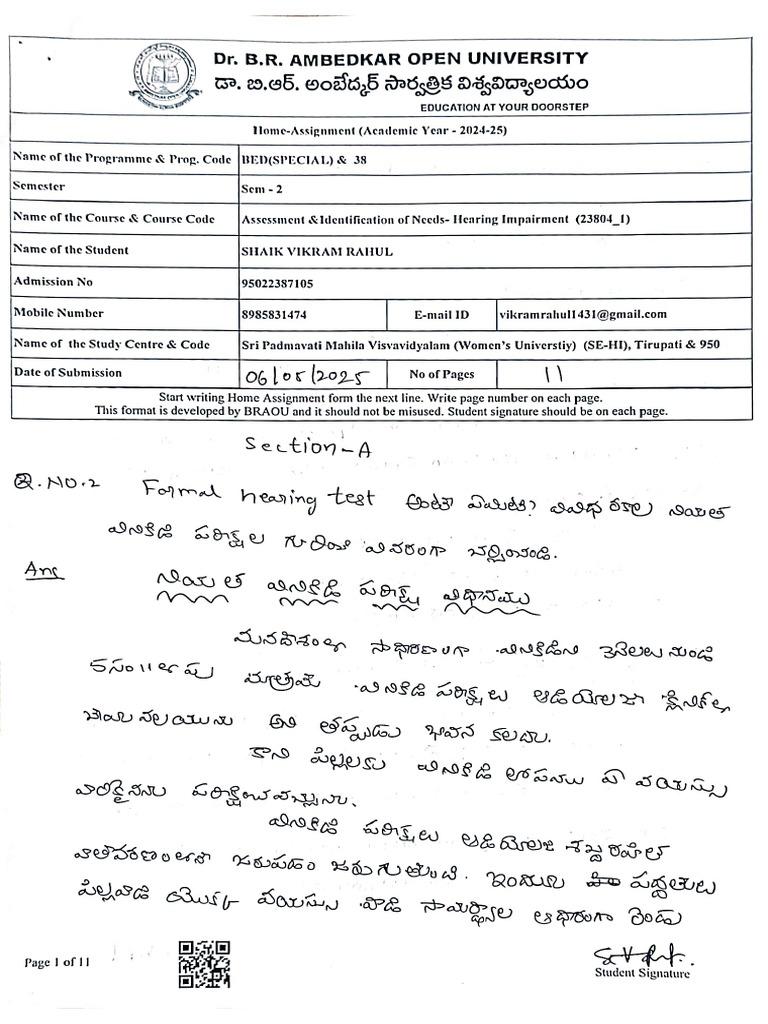 Dr. B.R. AMBEDKAR OPEN UNIVERSITY
డా. బి.ఆర్. అంబేద్కర్ సార్వత్రిక విశ్వవిద్యాలయం
EDUCATION AT YOUR DOORSTEP
Home-Assignment (Academic Year - 2024-25)
Name of the Programme & Prog. Code BED(SPECIAL) & 38
Semester Sem - 2
Name of the Course & Course Code Assessment &Identification of Needs- Hearing Impairment (23804_1)
Name of the Student SHAIK VIKRAM RAHUL
Admission No 95022387105
Mobile Number 8985831474 E-mail ID vikramrahul1431@gmail.com
Name of the Study Centre & Code Sri Padmavati Mahila Visvavidyalam (Women's Universtiy) (SE-HI), Tirupati & 950
Date of Submission 06/05/2025 No of Pages 11
Start writing Home Assignment form the next line. Write page number on each page.
This format is developed by BRAOU and it should not be misused. Student signature should be on each page.
Section-A
Q.NO.2 Formal hearing test అంటే ఏమిటి? వివిధ రకాల నియత
వినికిడి పరీక్షల గురించి వివరంగా చర్చించండి.
Ans నియత వినికిడి పరీక్ష విధానము
మనదేశంలో సాధారణంగా వినికిడిని 3నెలలు నుండి
5సం॥ల మాత్రమే వినికిడి పరీక్షలు ఆడియాలజీ క్లినిక్‌లో
అని తప్పుడు భావన కలదు.
కాని పిల్లలకు వినికిడి లోపము ఏ వయస్సు
వారికైనను పరీక్షించవచ్చును.
వినికిడి పరీక్షలు ఆడియాలజీ శబ్దరహిత
వాతావరణంలో జరుపడం జరుగుతుంది. ఇందులో పద్ధతులు
పిల్లవాడి యొక్క వయస్సు వాడి సామర్థ్యాల ఆధారంగా రెండు
Page 1 of 11
Student Signature